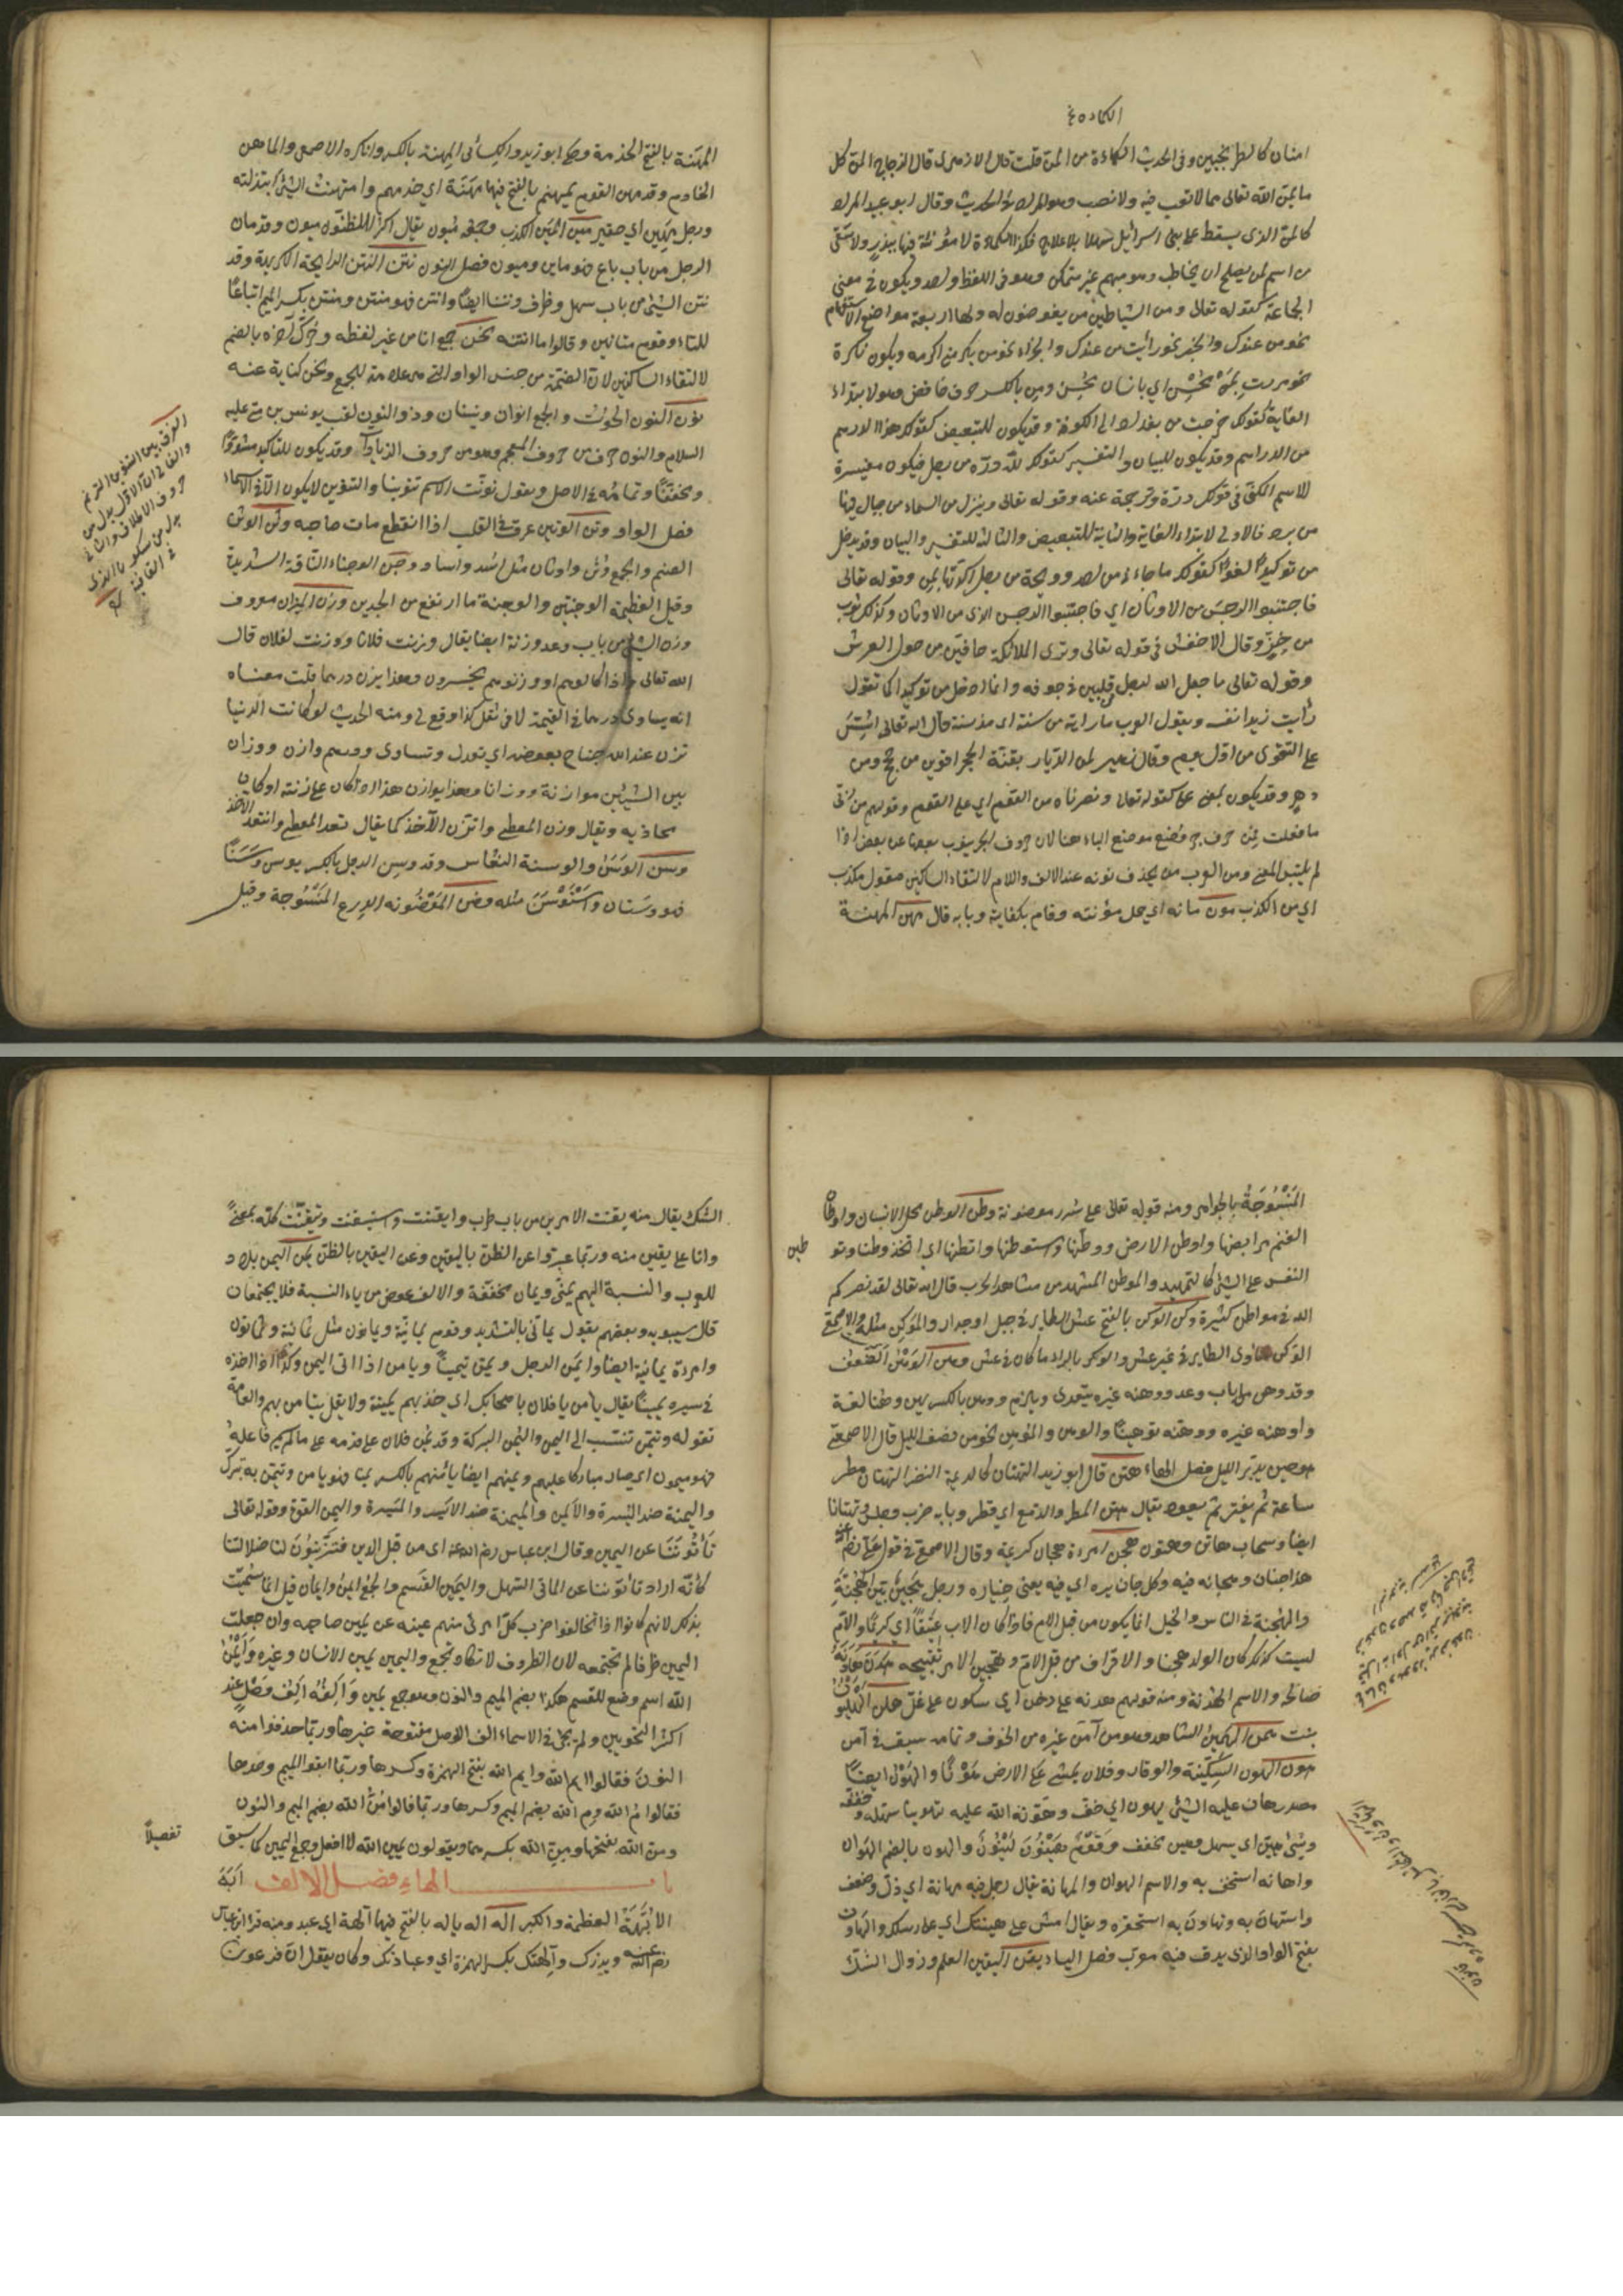 امنان كالطرنجبين وفى الحديث الكماءة من المن قلت قال الازهرى قال الزجاج المن كل
ما يمن الله تعالى مما لا تعب فيه ولا نصب وهو المراد فى الحديث وقال ابو عبيد المراد
كالمن الذى يسقط على بنى اسرائيل سهلا بلا علاج فكذا الكماءة لا مؤنة فيها ببذر ولا سقى
من اسم لمن يصلح ان يخاطب وهو مبهم غير متمكن وهو فى اللفظ واحد ويكون فى معنى
الجماعة كقوله تعالى ومن الشياطين من يغوصون له ولها اربعة مواضع الاستفهام
نحو من عندك والخبر نحو رأيت من عندك والجزاء نحو من يكرمنى اكرمه ويكون نكرة
نحو مررت بمن محسن اى بانسان محسن ومن بالكسر حرف خافض وهو لابتداء
الغاية كقولك خرجت من بغداد الى الكوفة وقد يكون للتبعيض كقولك هذا الدرهم
من الدراهم وقد يكون للبيان والتفسير كقولك لله دره من رجل فيكون مفسرة
للاسم المكنى فى قولك دره وترجمة عنه وقوله تعالى وينزل من السماء من جبال فيها
من برد فالاولى لابتداء الغاية والثانية للتبعيض والثالثة للتفسير والبيان وقد يدخل
من توكيدا لغوا كقولك ما جاءنى من احد وويحه من رجل اكدتهما بمن وقوله تعالى
فاجتنبوا الرجس من الاوثان اى فاجتنبوا الرجس الذى من الاوثان وكذلك ثوب
من خز وقال الاخفش فى قوله تعالى وترى الملائكة حافين من حول العرش
وقوله تعالى ما جعل الله لرجل من قلبين فى جوفه وانما ادخل من توكيدا كما تقول
رأيت زيدا نفسه ويقول العرب ما رايته من سنة اى مذ سنة قال الله تعالى اسس
على التقوى من اول يوم وقال زهير لمن الديار بقنة الحجر اقوين من حجج ومن
دهر وقد يكون بمعنى على كقوله تعالى ونصرناه من القوم اى على القوم وقولهم من ربى
ما فعلت فمن حرف جر وضع موضع الباء هنا لان حروف الجر ينوب بعضها عن بعض اذا
لم يلتبس المعنى ومن العرب من يحذف نونه عند الالف واللام لالتقاء الساكنين فيقول ملكذب
اى من الكذب مون مانه اى حمل مؤنته وقام بكفايته وبابه قال مهن المهنة
المهنة بالفتح الخدمة وحكى ابو زيد والكسائى المهنة بالكسر وانكره الاصمعى والماهن
الخادم وقد مهن القوم يمهنهم بالفتح فيهما مهنة اى خدمهم وامتهنت الشئ ابتذلته
ورجل مهين اى حقير مين المين الكذب وجمعه ميون يقال اكثر الظنون ميون وقد مان
الرجل من باب باع فهو ماين وميون فصل النون نتن النتن الرايحة الكريهة وقد
نتن الشئ من باب سهل وظرف ونتنا ايضا وانتن فهو منتن ومنتن بكسر الميم اتباعا
للتاء وقوم مناتين وقالوا ما انتنه نحن جمع انا من غير لفظه وحرك آخره بالضم
لالتقاء الساكنين لان الضمة من جنس الواو التى هى علامة للجمع ونحن كناية عنه
نون النون الحوت والجمع انوان ونينان وذو النون لقب يونس بن متى عليه
السلام والنون حرف من حروف المعجم وهو من حروف الزيادة وقد يكون للتأكيد مشددا
ومخففا وتمامه فى الاصل وتقول نونت الاسم تنوينا والتنوين لا يكون الا فى الاسماء
فصل الواو وتن الوتين عرق فى القلب اذا انقطع مات صاحبه وثن الوثن
الصنم والجمع وثن واوثان مثل اسد وآساد وجن الوجناء الناقة الشديدة
وقيل العظيمة الوجنتين والوجنة ما ارتفع من الخدين وزن الميزان معروف
وزن الشئ من باب وعد وزنة ايضا يقال وزنت فلانا ووزنت لفلان قال
الله تعالى واذا كالوهم او وزنوهم يخسرون وهذا يزن درهما قلت معناه
انه يساوى درهما فى القيمة لا فى ثقل كذا وقع لى ومنه الحديث لو كانت الدنيا
تزن عند الله جناح بعوضة اى تعدل وتساوى ودرهم وازن ووازن
بين الشيئين موازنة ووزانا وهذا يوازن هذا اذا كان على زنته او كان
يحاذيه ويقال وزن المعطى واتزن الآخذ كما يقال نقد المعطى وانتقد الآخذ
وسن الوسن والوسنة النعاس وقد وسن الرجل بالكسر يوسن وسنا
فهو وسنان واستوسن مثله وضن الموضونه الدرع المنسوجة وقيل
الفرق بين التنوين الترنم
والغالى ان الاول بدل من
حروف الاطلاق والثانى
المنسوجة بالجواهر ومنه قوله تعالى على سرر موضونة وطن الوطن محل الانسان واوطان
الغنم مرابضها واوطن الارض ووطنها واستوطنها واتطنها اى اتخذ وطنا وتو
طين
النفس على الشئ كالتمهيد والموطن المشهد من مشاهد الحرب قال الله تعالى لقد نصركم
الله فى مواطن كثيرة وكن الوكن بالفتح عش الطاير فى جبل او جدار والموكن مثله الاصمعى
الوكن مأوى الطاير فى غير عش والوكر بالراء ما كان فى عش وهن الوهن الضعف
وقد وهن من باب وعد ووهنه غيره يتعدى ويلزم ووهن بالكسر يهن وهنا لغة
واوهنه غيره ووهنه توهينا والوهن والموهن نحو من نصف الليل قال الاصمعى
هو حين يدبر الليل فصل الهاء هتن قال ابو زيد التهتان كالديمة النضر التهتان مطر
ساعة ثم يفتر ثم يعود يقال هتن المطر والدمع اى قطر وبابه ضرب وجلس وتهتانا
ايضا وسحاب هاتن وهتون هجن امرءة هجان كريمة وقال الاصمعى فى قول على رضى الله عنه
هذا جناى وهجانه فيه وكل جان يده الى فيه يعنى خياره ورجل هجين بين الهجنة
والهجنة فى الناس والخيل انما يكون من قبل الام فاذا كان الاب عتيقا اى كريما والام
ليست كذلك كان الولد هجينا والاقراف من قبل الاب وتهجين الامر تقبيحه هدن هادنه
صالحه والاسم الهدنة ومنه قولهم هدنة على دخن اى سكون على غل هلن الهليون
نبت همن المهيمن الشاهد وهو من آمن غيره من الخوف وتمامه سبق فى أمن
هون الهون السكينة والوقار وفلان يمشى على الارض هونا والهون ايضا
مصدر هان عليه الشئ يهون اى خف وهونه الله عليه تهوينا سهله وخففه
وشئ هين اى سهل وهين مخفف وقوم هينون لينون والهون بالضم الهوان
واهانه استخف به والاسم الهوان والمهانة يقال رجل فيه مهانة اى ذل وضعف
واستهان به وتهاون به استحقره ويقال امش على هينتك اى على رسلك والهاون
بفتح الواو الذى يدق فيه معرب فصل الياء يقن اليقين العلم وزوال الشك
الشك يقال منه يقنت الامر من باب طرب وايقنت واستيقنت وتيقنت كله بمعنى
وانا على يقين منه وربما عبروا عن الظن باليقين وعن اليقين بالظن يمن اليمن بلاد
للعرب والنسبة اليهم يمنى ويمان مخففة والالف عوض من ياء النسبة فلا يجتمعان
قال سيبويه وبعضهم يقول يمانى بالتشديد وقوم يمانية ويمانون مثل ثمانية وثمانون
وامرءة يمانية ايضا وايمن الرجل ويمن تيمينا ويامن اذا اتى اليمن وكذا اذا اخذ
فى سيره يمينا يقال يامن يا فلان باصحابك اى خذ بهم يمينة ولا يقل تيامن بهم والعامة
تقوله وتيمن تنسب الى اليمن واليمن البركة وقد يمن فلان على قومه على ما لم يسم فاعله
فهو ميمون اى صار مباركا عليهم ويمنهم ايضا يامنهم بالكسر يمنا فهو يامن وتيمن به تبرك
واليمنة ضد اليسرة والايمن والميمنة ضد الايسر والميسرة واليمين القوة وقوله تعالى
تأتوننا عن اليمين وقال ابن عباس رضى الله عنه اى من قبل الدين فتزينون لنا ضلالتنا
كأنه اراد تأتوننا عن المأتى السهل واليمين القسم والجمع ايمن وايمان قيل انما سميت
بذلك لانهم كانوا اذا تحالفوا ضرب كل امرئ منهم يمينه عن يمين صاحبه وان جعلت
اليمين ظرفا لم تجمعه لان الظروف لا تكاد تجمع واليمين يمين الانسان وغيره وايمن
الله اسم وضع للقسم هكذا بضم الميم والنون وهو جمع يمين والفه الف وصل عند
اكثر النحويين ولم يجئ فى الاسماء الف الوصل مفتوحة غيرها وربما حذفوا منه
النون فقالوا ايم الله وايم الله بفتح الهمزة وكسرها وربما ابقوا الميم وحدها
فقالوا م الله وم الله بضم الميم وكسرها وربما قالوا من الله بضم الميم والنون
ومن الله بفتحها ومن الله بكسرهما ويقولون يمين الله لا افعل وجمع اليمين كما سبق
تفصيلاً
باب الهاء فصل الالف ابه
الابهة العظمة والكبر اله اله ياله بالفتح فيهما الهة اى عبد ومنه قرأ ابن عباس
رضى الله عنه ويذرك وآلهتك بكسر الهمزة اى وعبادتك وكان يقول ان فرعون